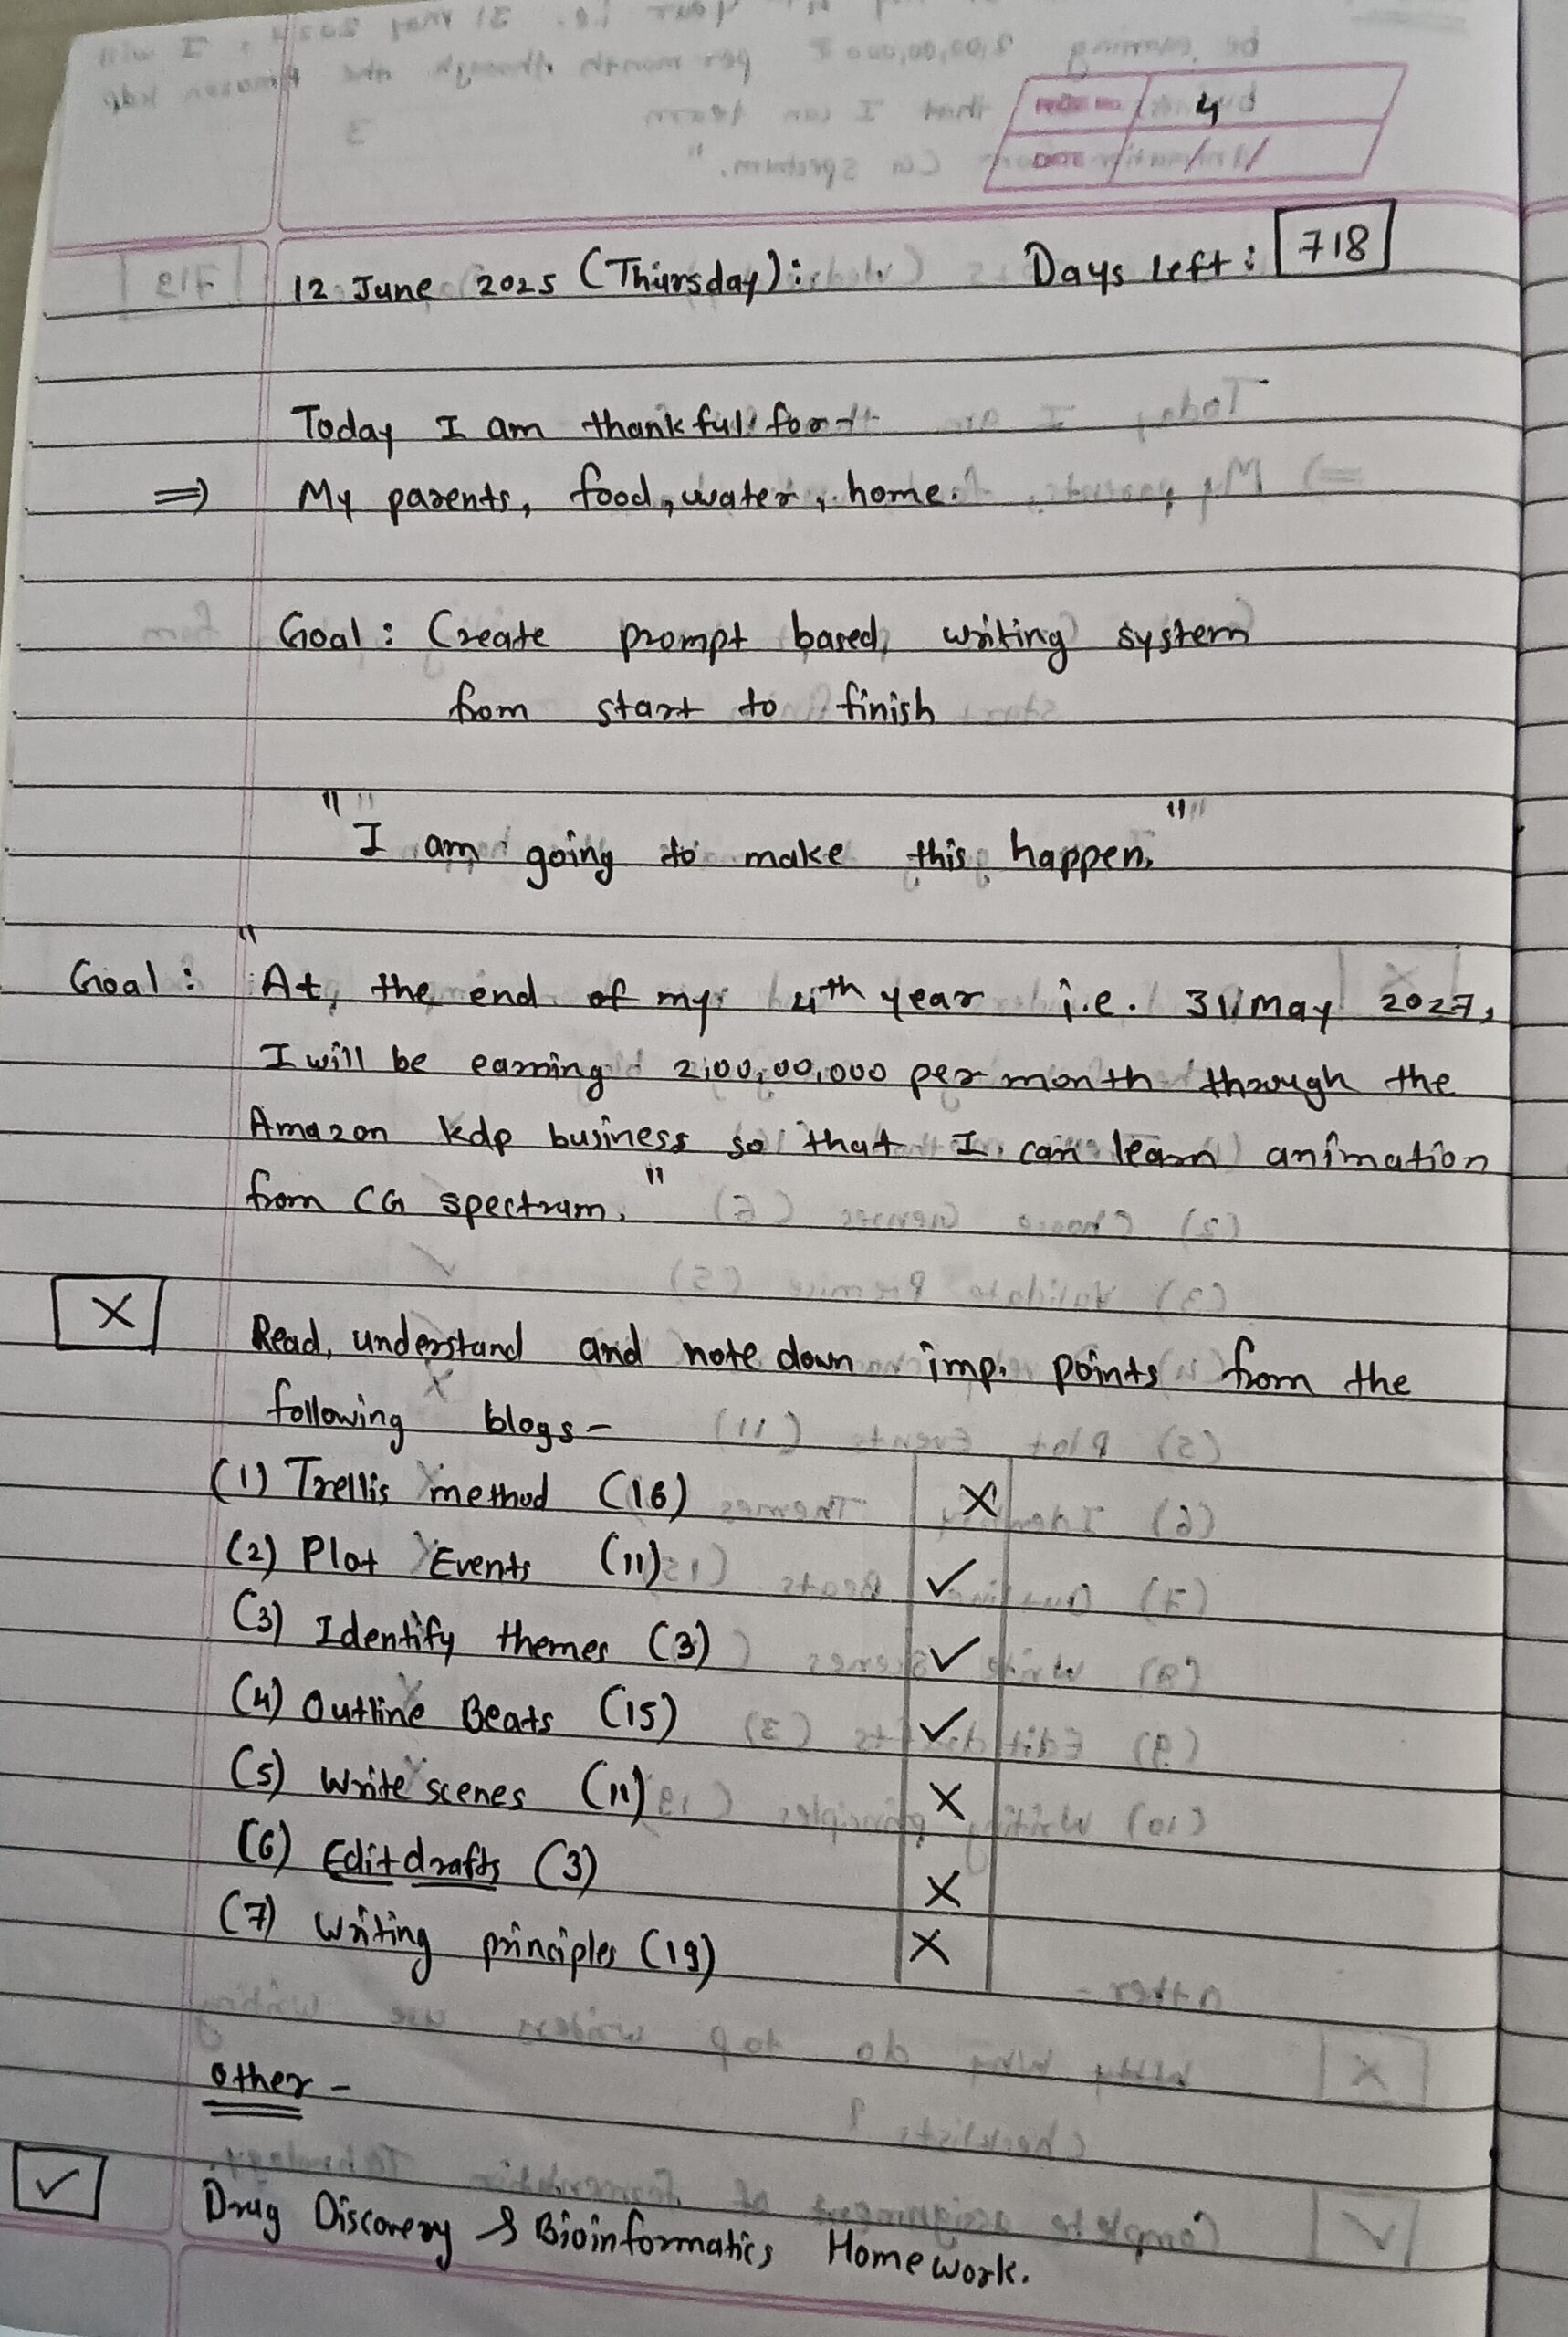 4
12 June 2025 (Thursday): Days left: 718
Today I am thankful for -
=> My parents, food, water, home.
Goal: Create prompt based writing system
from start to finish
"I am going to make this happen."
Goal: "At the end of my 4th year i.e. 31 may 2027,
I will be earning 2,00,00,000 per month through the
Amazon kdp business so that I can learn animation
from CG spectrum."
X Read, understand and note down imp. points from the
following blogs -
(1) Trellis method (16) X
(2) Plot Events (11) ✓
(3) Identify themes (3) ✓
(4) Outline Beats (15) ✓
(5) Write scenes (11) X
(6) Edit drafts (3) X
(7) Writing principles (19) X
other -
✓ Drug Discovery & Bioinformatics Homework.